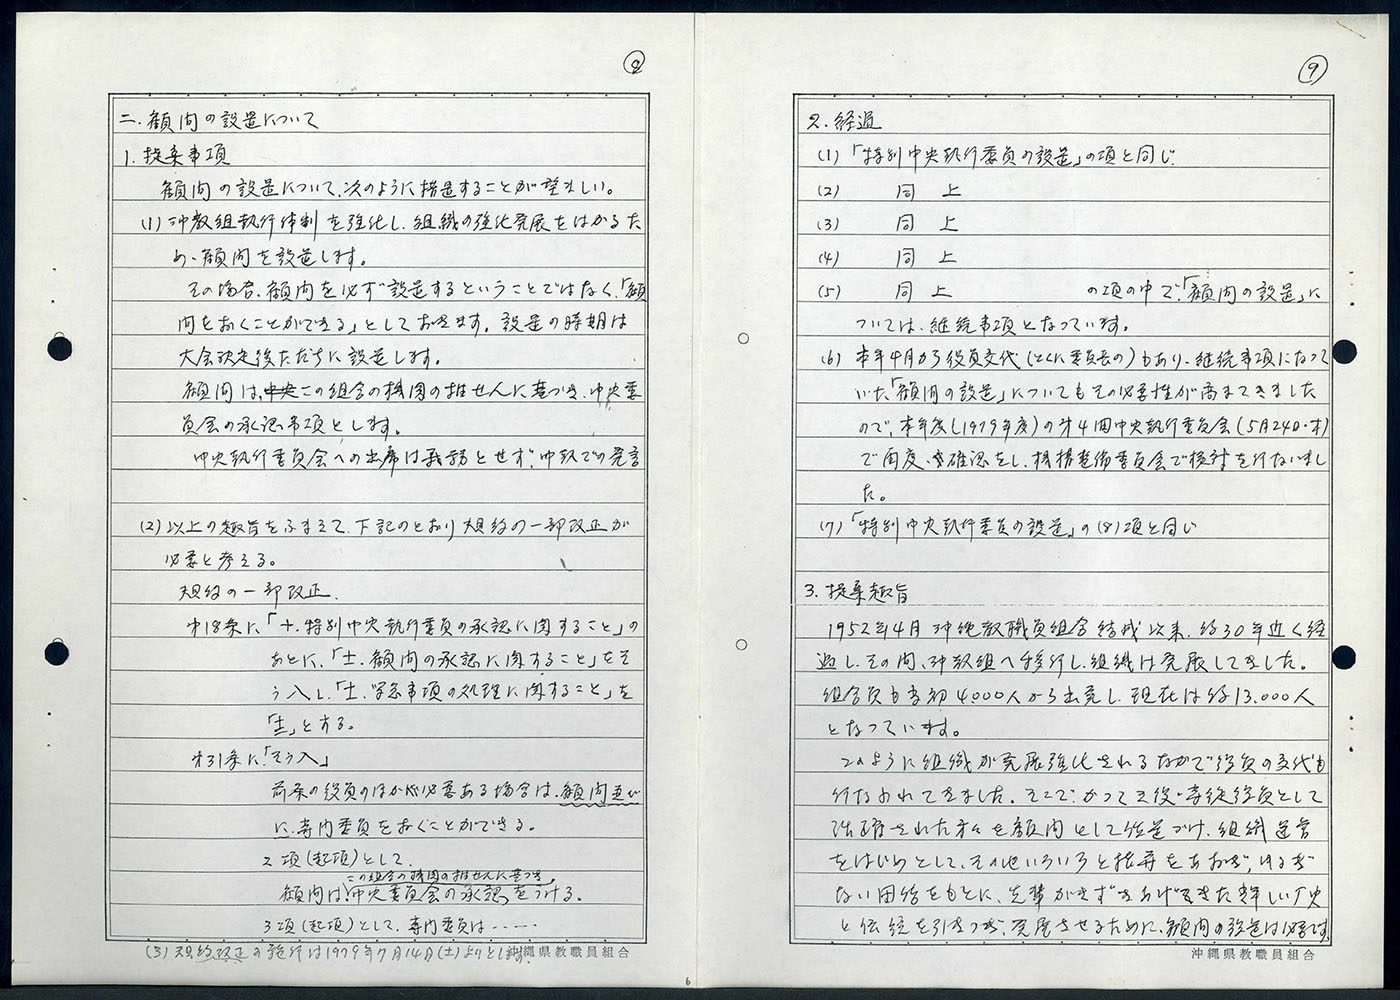 8
二. 顧問の設置について
1. 提案事項
顧問の設置について、次のように措置することが望ましい。
(1) 沖教組執行体制を強化し、組織の強化発展をはかるた
め、顧問を設置します。
その場合、顧問を必ず設置するということではなく、「顧
問をおくことができる」としておきます。設置の時期は
大会決定後ただちに設置します。
顧問は、この組合の機関の推せんに基づき、中央委
員会の承認事項とします。
中央執行委員会への出席は義務とせず、中執での発言
(2) 以上の趣旨をふまえて、下記のとおり規約の一部改正が
必要と考える。
規約の一部改正.
才18条に「十. 特別中央執行委員の承認に関すること」の
あとに、「土. 顧問の承認に関すること」をそ
う入し、「土. 緊急事項の処理に関すること」を
「圭」とする。
才31条に「そう入」
前条の役員のほか必要ある場合は、顧問並び
に、専門委員をおくことができる。
2項(起項)として、
この組合の機関の推せんに基づき、
顧問は、中央委員会の承認をうける。
3項(起項)として、専門委員は……
(3) 規約改正の施行は1979年7月14日(土)よりとします。
沖縄県教職員組合
6
9
2. 経過
(1)「特別中央執行委員の設置」の項と同じ
(2) 同上
(3) 同上
(4) 同上
(5) 同上 の項の中で、「顧問の設置」に
ついては、継続事項となっています。
(6) 本年4月から役員交代(とくに委員長の)もあり、継続事項になって
いた「顧問の設置」についてもその必要性が高まてきました
ので、本年度(1979年度)の才4回中央執行委員会(5月24日・木)
で再度、確認をし、機構整備委員会で検討を行ないまし
た。
(7)「特別中央執行委員の設置」の(8)項と同じ
3. 提案趣旨
1952年4月沖縄教職員組合結成以来、約30年近く経
過し、その間、沖教組へ移行し、組織は発展してきました。
組合員も当初4,000人から出発し、現在は約13,000人
となっています。
このように組織が発展強化されるなかで役員の交代も
行なわれてきました。そこで、かつて三役・専従役員として
活躍された方々を顧問として位置づけ、組織運営
をはじめとして、その他いろいろと指導をあおぎ、ゆるぎ
ない団結をもとに、先輩がきずきあげてきた輝しい歴史
と伝統を引きつぎ、発展させるために、顧問の設置は必要です
沖縄県教職員組合